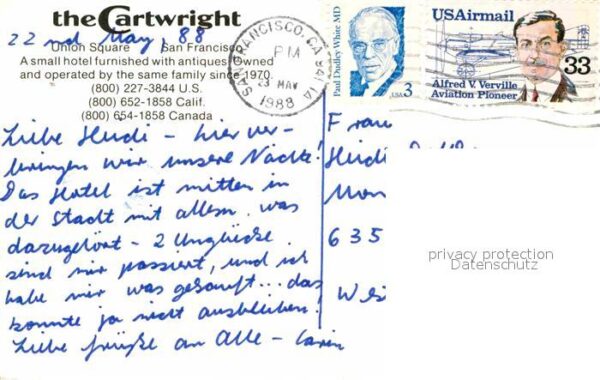 the Cartwright
22nd May, 88
Union Square San Francisco
A small hotel furnished with antiques. Owned
and operated by the same family since 1970.
(800) 227-3844 U.S.
(800) 652-1858 Calif.
(800) 654-1858 Canada
Liebe Heidi – hier ver-
bringen wir unsere Nächte!
Das Hotel ist mitten in
der Stadt mit allem, was
dazugehört – 2 Unglücke
sind mir passiert, und ich
habe mir was gekauft... das
konnte ja nicht ausbleiben!
Liebe Grüße an Alle –
SAN FRANCISCO, CA
PM
23 MAY
1988
Paul Dudley White MD
USA 3
USAirmail
33
Alfred V. Verville
Aviation Pioneer
Frau
Heidi
635
privacy protection
Datenschutz